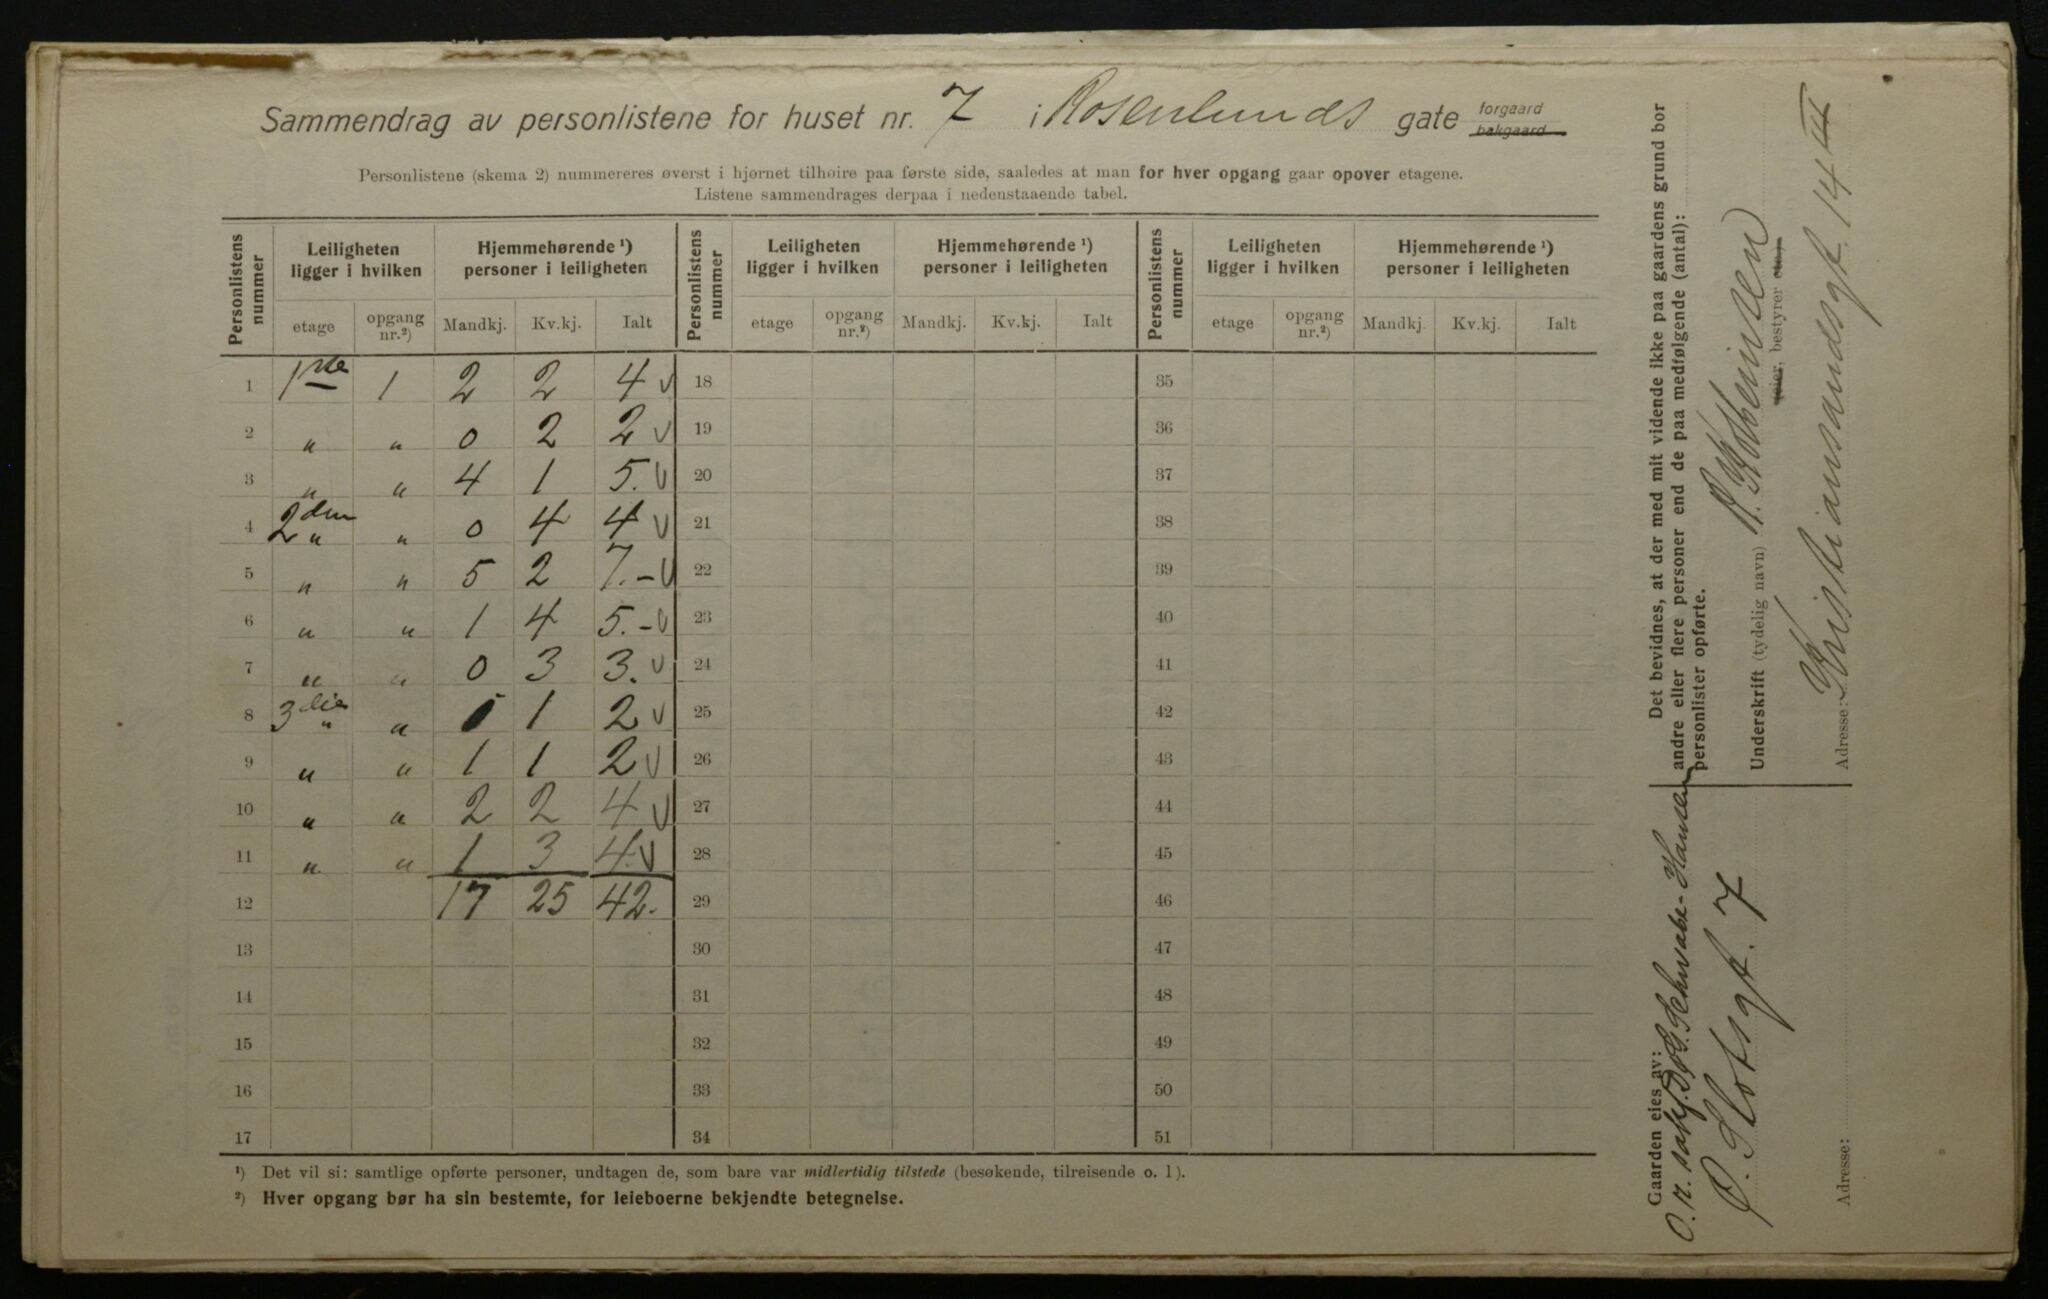 Sammendrag av personlistene for huset nr. 7 i Rosenlunds gate forgaard bakgaard
Personlistene (skema 2) nummereres øverst i hjørnet tilhøire paa første side, saaledes at man for hver opgang gaar opover etagene.
Listene sammendrages derpaa i nedenstaaende tabel.
Personlistens nummer | Leiligheten ligger i hvilken | Hjemmehørende ¹) personer i leiligheten | Personlistens nummer | Leiligheten ligger i hvilken | Hjemmehørende ¹) personer i leiligheten | Personlistens nummer | Leiligheten ligger i hvilken | Hjemmehørende ¹) personer i leiligheten
etage | opgang nr.²) | Mandkj. | Kv.kj. | Ialt | etage | opgang nr.²) | Mandkj. | Kv.kj. | Ialt | etage | opgang nr.²) | Mandkj. | Kv.kj. | Ialt
1 | 1ste | 1 | 2 | 2 | 4 v | 18 | 35
2 | " | " | 0 | 2 | 2 v | 19 | 36
3 | " | " | 4 | 1 | 5. v | 20 | 37
4 | 2den " | " | 0 | 4 | 4 v | 21 | 38
5 | " | " | 5 | 2 | 7.- v | 22 | 39
6 | " | " | 1 | 4 | 5.- v | 23 | 40
7 | " | " | 0 | 3 | 3. v | 24 | 41
8 | 3die " | " | 1 | 1 | 2 v | 25 | 42
9 | " | " | 1 | 1 | 2 v | 26 | 43
10 | " | " | 2 | 2 | 4 v | 27 | 44
11 | " | " | 1 | 3 | 4. v | 28 | 45
12 | 17 | 25 | 42. | 29 | 46
13 | 30 | 47
14 | 31 | 48
15 | 32 | 49
16 | 33 | 50
17 | 34 | 51
¹) Det vil si: samtlige opførte personer, undtagen de, som bare var midlertidig tilstede (besøkende, tilreisende o. l).
²) Hver opgang bør ha sin bestemte, for leieboerne bekjendte betegnelse.
Det bevidnes, at der med mit vidende ikke paa gaardens grund bor
andre eller flere personer end de paa medfølgende (antal):
personlister opførte.
Underskrift (tydelig navn)
(eier, bestyrer etc.)
Adresse: Kristiansandsgt. 14 III
Gaarden eies av:
O. r. sakf. G. Schwabe-Hansen
Ø. Slotsgt. 7
Adresse: